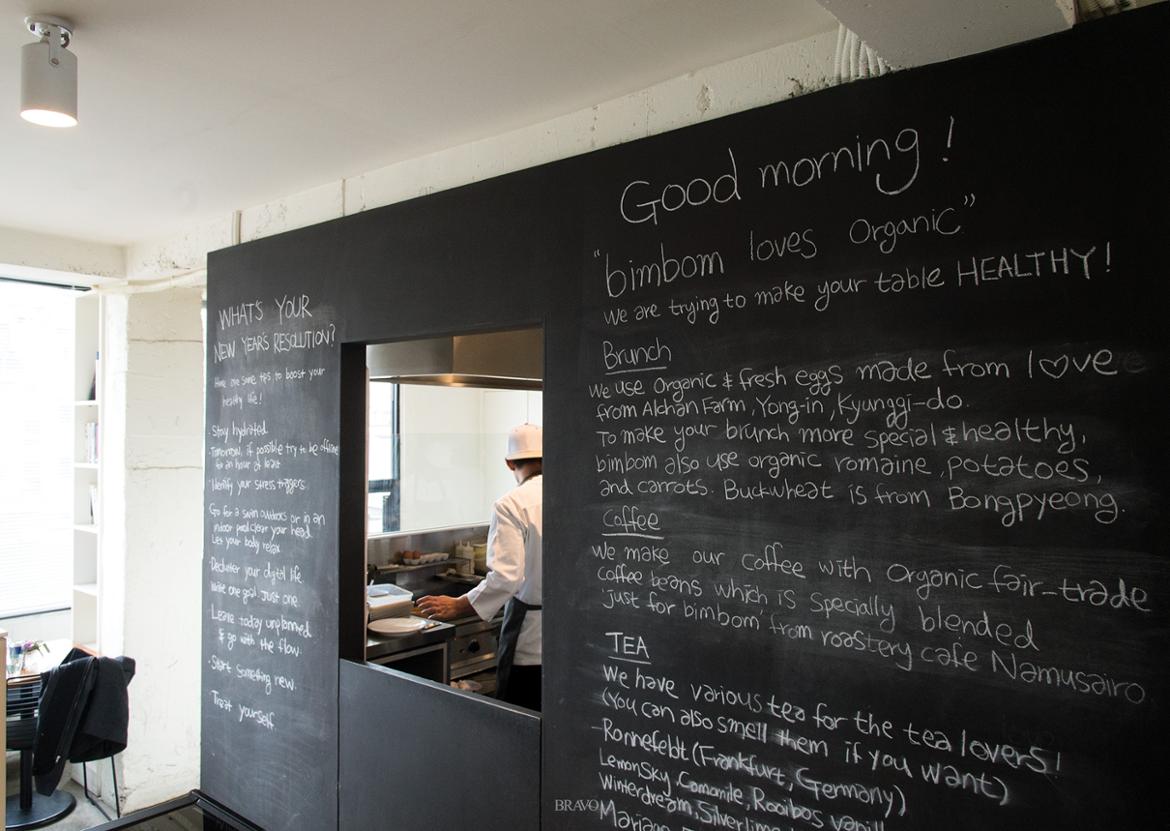 WHAT'S YOUR
NEW YEAR'S RESOLUTION?
Here are some tips to boost your
healthy life!
·Stay hydrated
·Tomorrow, if possible try to be offline
for an hour at least
·Identify your stress triggers
Go for a swim outdoors or in an
indoor pool, clear your head.
Let your body relax
·Declutter your digital life.
Write one goal. Just one
·Leave today unplanned
& go with the flow.
·Start something new.
Treat yourself
Good morning!
"bimbom loves Organic"
We are trying to make your table HEALTHY!
Brunch
We use Organic & fresh eggs made from l♡ve
from Alchan Farm, Yong-in, Kyunggi-do.
To make your brunch more special & healthy,
bimbom also use organic romaine, potatoes,
and carrots. Buckwheat is from Bongpyeong.
Coffee
We make our coffee with Organic fair-trade
coffee beans which is specially blended
just for bimbom from roastery cafe Namusairo
TEA
We have various tea for the tea lovers!
(You can also smell them if you want)
-Ronnefeldt (Frankfurt, Germany)
LemonSky, Camomile, Rooibos vanill
Winterdream, Silverlime
BRAVO